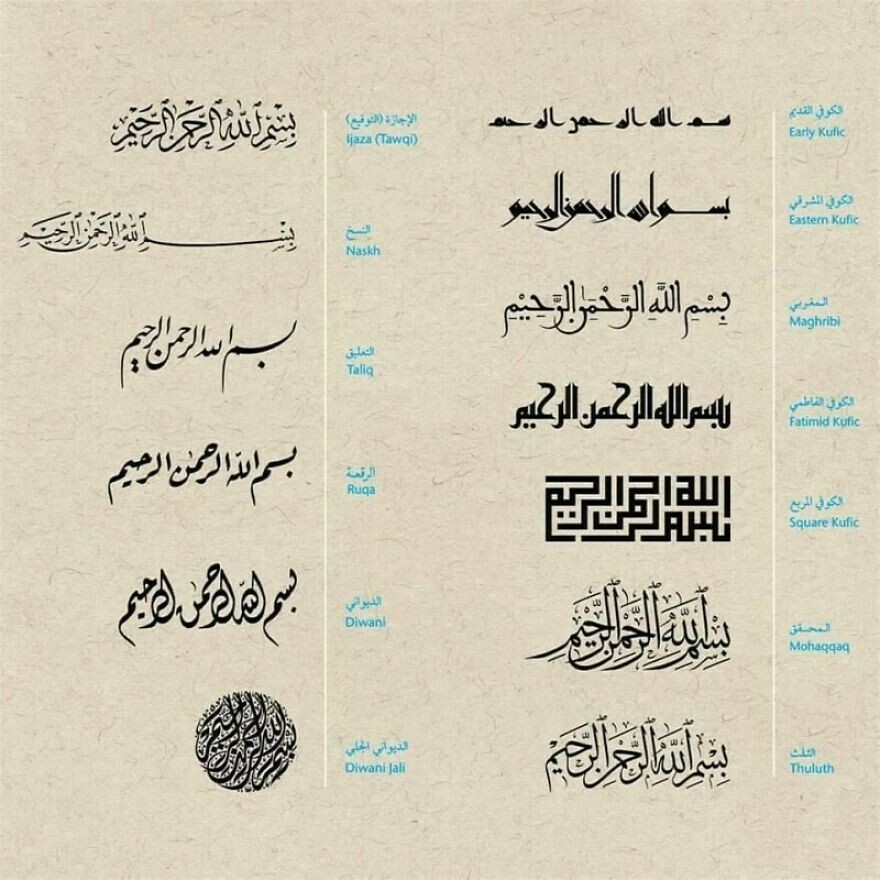 بِسْمِ اللهِ الرَّحْمٰنِ الرَّحِيْمِ
الإجازة (التوقيع)
Ijaza (Tawqi)
بِسْمِ اللهِ الرَّحْمٰنِ الرَّحِيْمِ
النسخ
Naskh
بسم الله الرحمن الرحيم
التعليق
Taliq
بسم الله الرحمن الرحيم
الرقعة
Ruqa
بسم الله الرحمن الرحيم
الديواني
Diwani
بسم الله الرحمن الرحيم
الديواني الجلي
Diwani Jali
بسم الله الرحمن الرحيم
الكوفي القديم
Early Kufic
بسم الله الرحمن الرحيم
الكوفي المشرقي
Eastern Kufic
بِسْمِ اللَّهِ الرَّحْمَٰنِ الرَّحِيْمِ
المغربي
Maghribi
بسم الله الرحمن الرحيم
الكوفي الفاطمي
Fatimid Kufic
بسم الله الرحمن الرحيم
الكوفي المربع
Square Kufic
بِسْمِ اللهِ الرَّحْمٰنِ الرَّحِيْمِ
المحقق
Mohaqqaq
بِسْمِ اللهِ الرَّحْمٰنِ الرَّحِيْمِ
الثلث
Thuluth